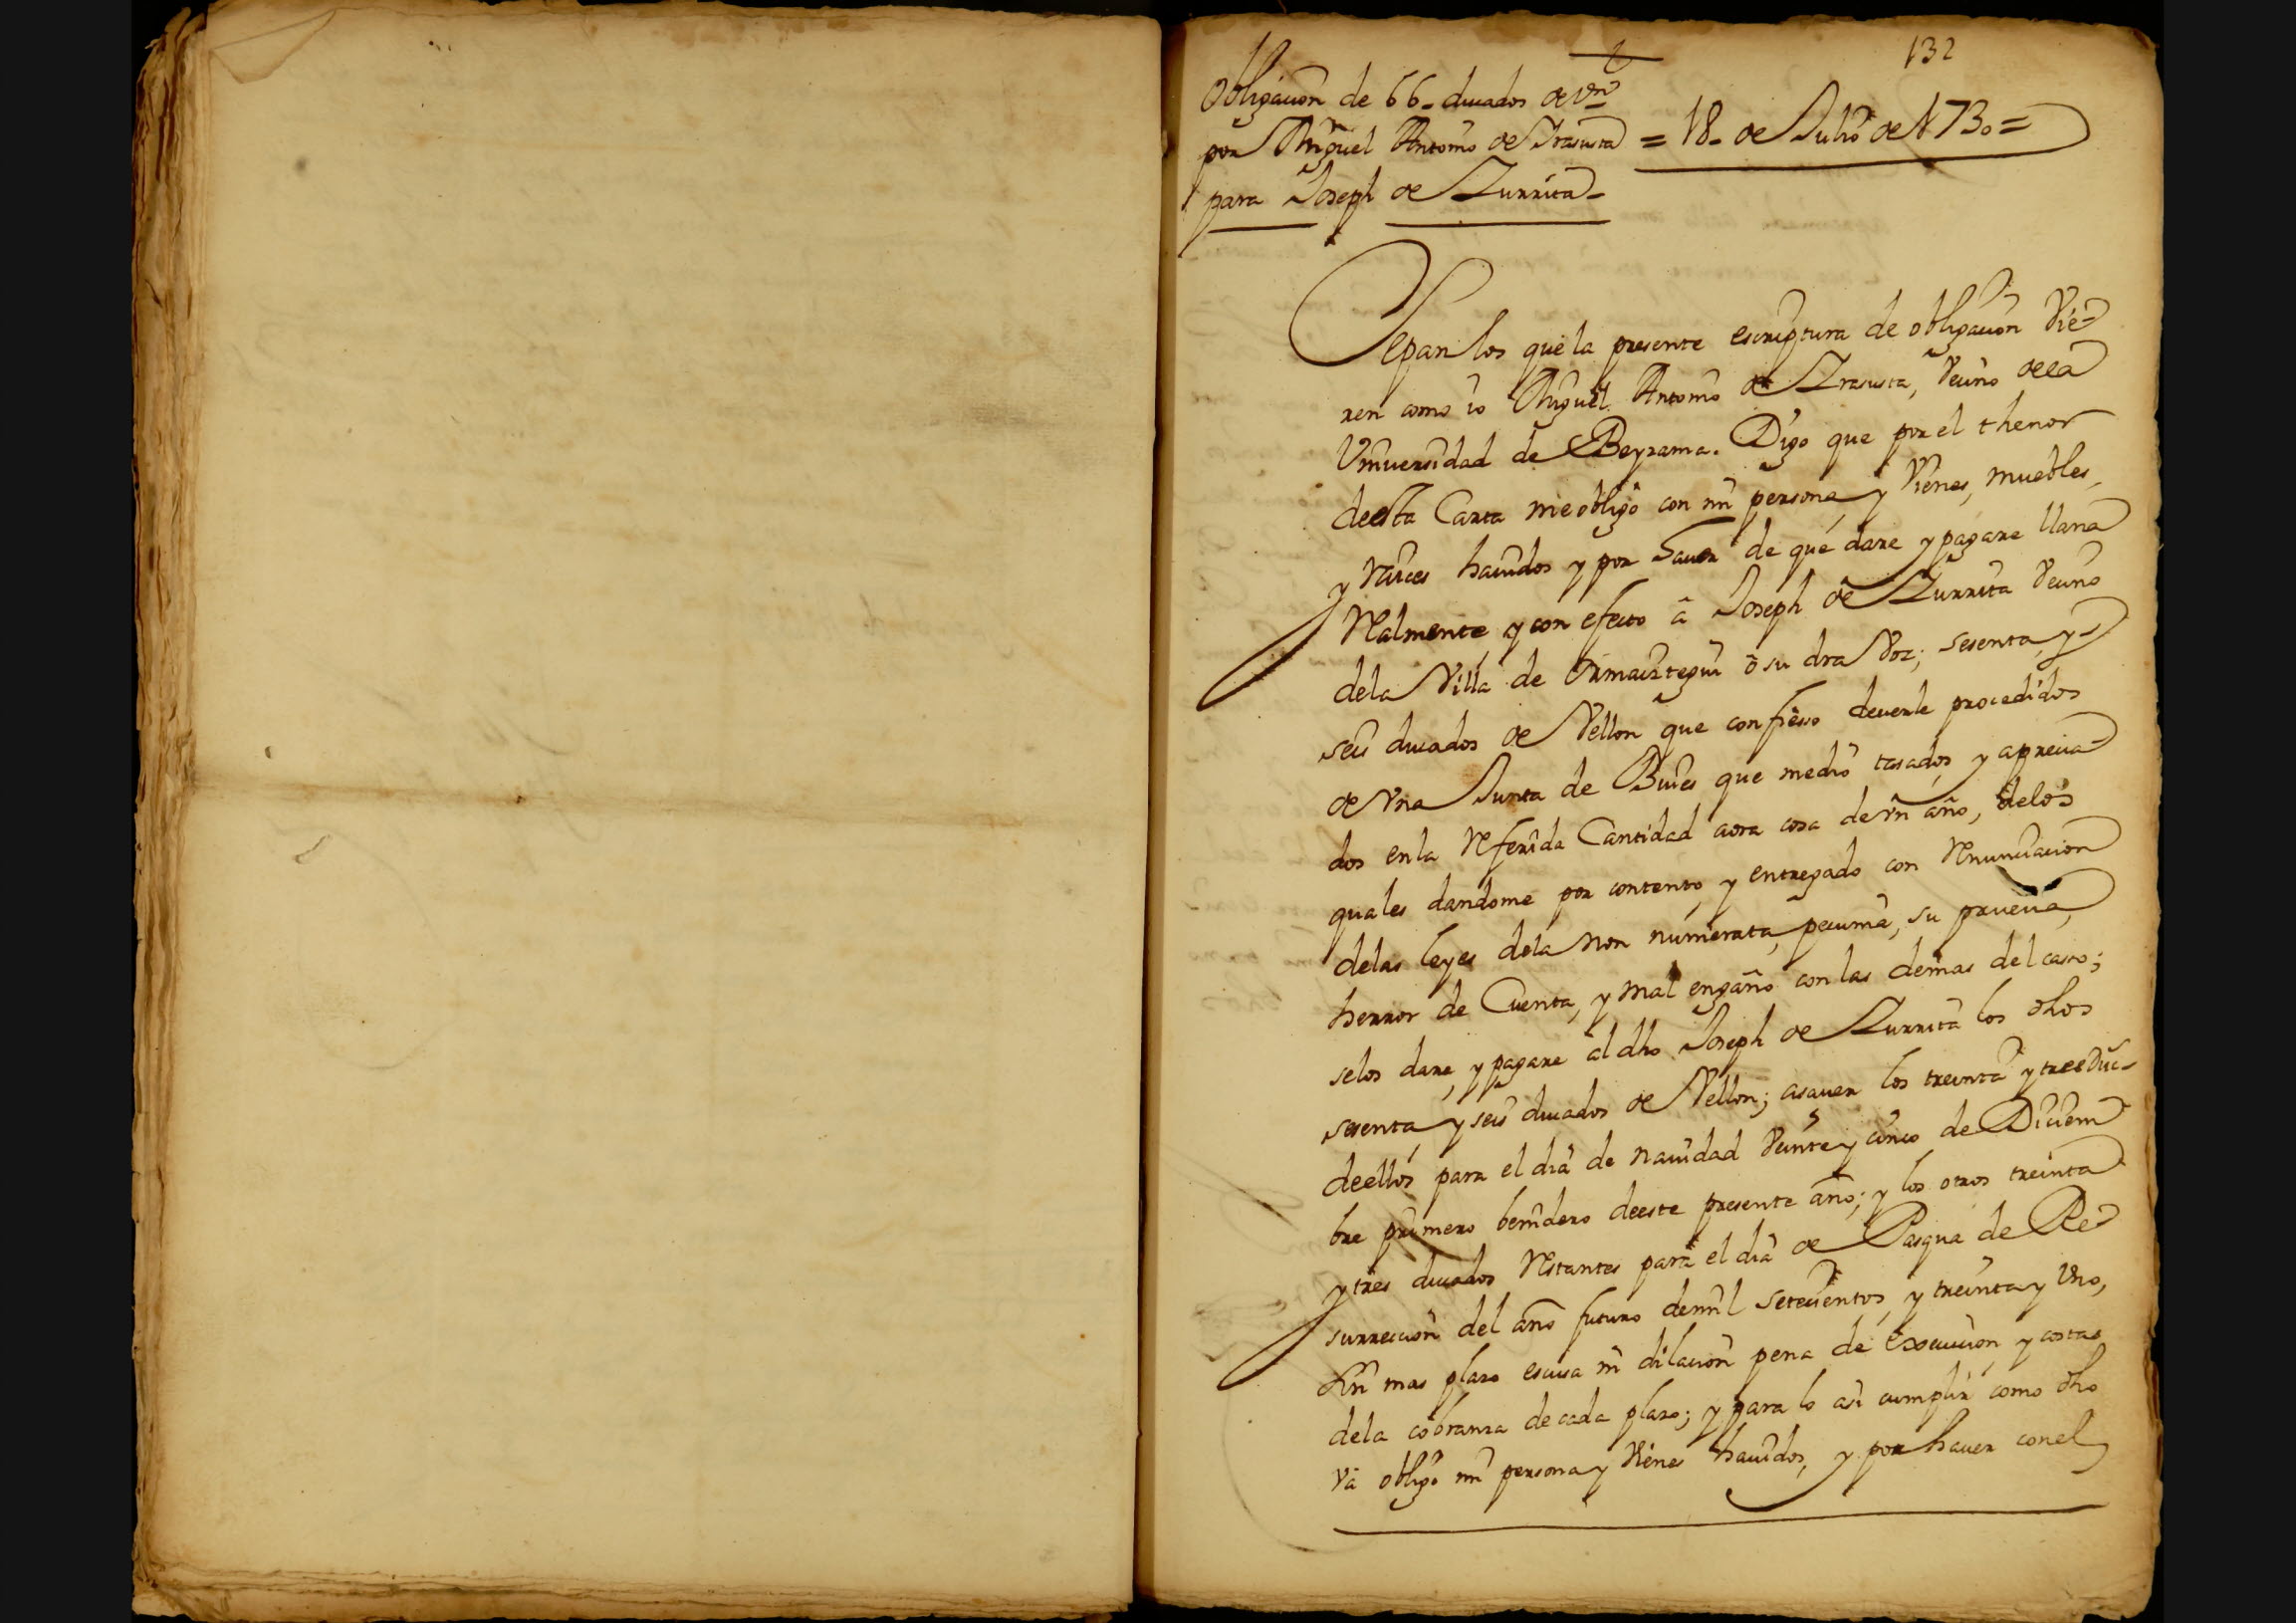 132
Obligaçion de 66- ducados de vn
por Miguel Antonio de Irasusta = 18- de Julio de 1730=
para Joseph de Zurrita-
Sepan los que la presente escriptura de obligaçion vie-
ren como io Miguel Antonio de Irasusta, veçino de la
Universidad de Beyzama. Digo que por el thenor
de esta Carta me obligo con mi persona, y vienes, muebles,
y raices hauidos y por hauer de que dare y pagare llana
Realmente, y con efecto â Joseph de Zurrita veçino
dela Villa de Ormaiztegui ô su dra voz; sesenta, y
seis ducados de Vellon que confieso deuerle procedidos
de vna Junta de Bueies que me dio tasados, y apreçia-
dos en la Referida Cantidad aora cosa de vn año, delos
quales dandome por contento, y entregado con Renunçiaçion
delas leyes dela non numerata, pecunia, su prueua,
herror de Cuenta, y mal engaño con las demas del caso;
selos dare, y pagare al dho Joseph de Zurrita los dhos
sesenta, y seis ducados de Vellon; asauer los treinta y tres duc-
de ellos para el dia de nauidad veinte y cinco de Diçiem
bre primero benidero de este presente año; y los otros treinta
y tres ducados Restantes para el dia de Pasqua de Re-
surrecçion del año futuro de mil seteçientos, y treinta y vno,
sin mas plazo escusa ni dilaçion pena de execuçion, y costas
dela cobranza de cada plazo; y para lo asi cumplir como dho
va obligo mi persona y vienes hauidos, y por hauer con el